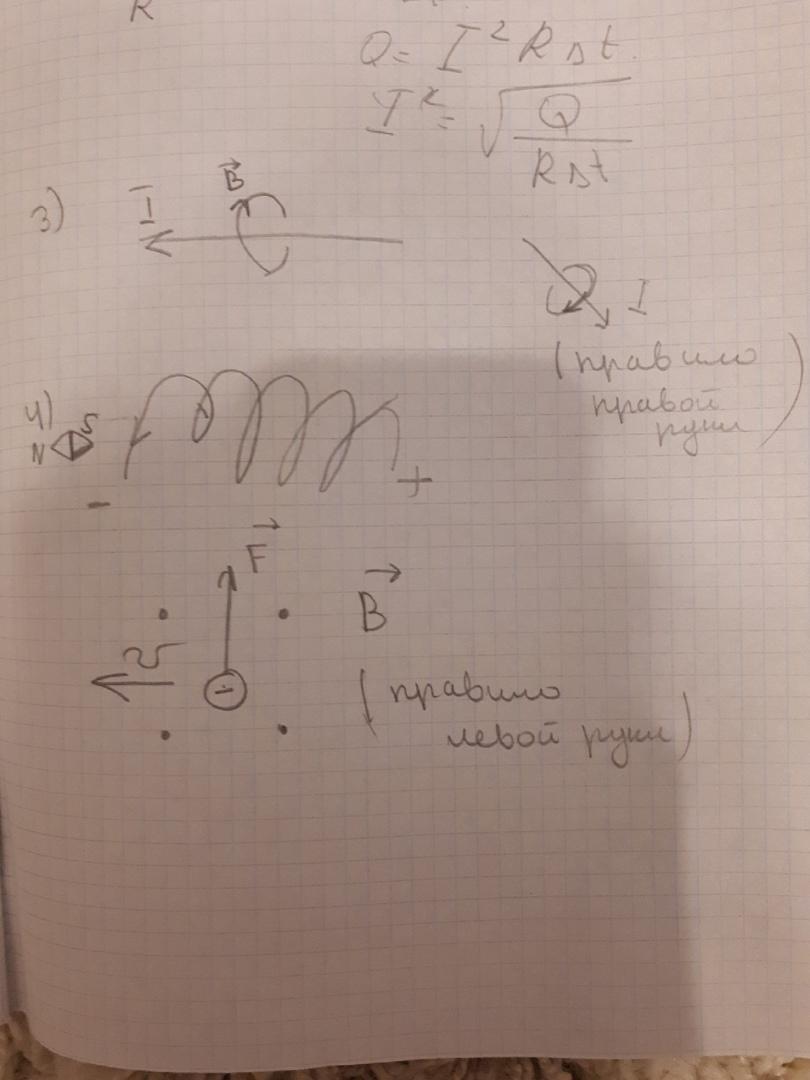 R
Q = I² R Δt.
I² = √(Q / RΔt)
3) I B⃗
I
(правило
правой
руки)
4) N S
- +
F⃗
B⃗
υ -
(правило
левой руки)